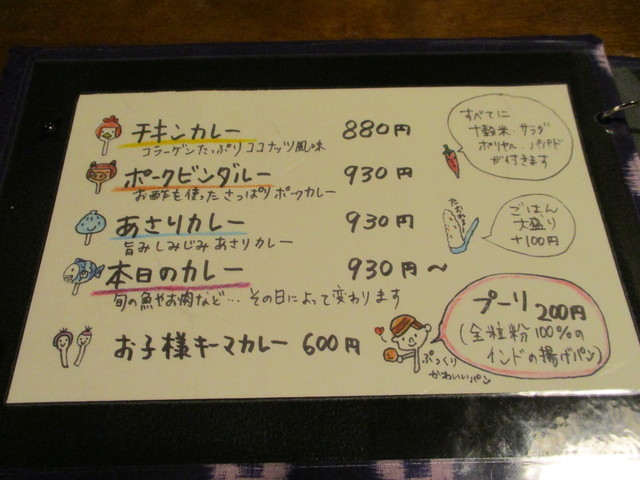 チキンカレー 880円
コラーゲンたっぷりココナッツ風味
ポークビンダルー 930円
お酢を使ったさっぱりポークカレー
あさりカレー 930円
旨みしみじみあさりカレー
本日のカレー 930円〜
旬の魚やお肉など… その日によって変わります
お子様キーマカレー 600円
すべてに
十穀米・サラダ
ポリヤル・パパド
が付きます
ごはん
大盛り
+100円
プーリ 200円
(全粒粉100%の
インドの揚げパン)
ぷっくり
かわいいパン